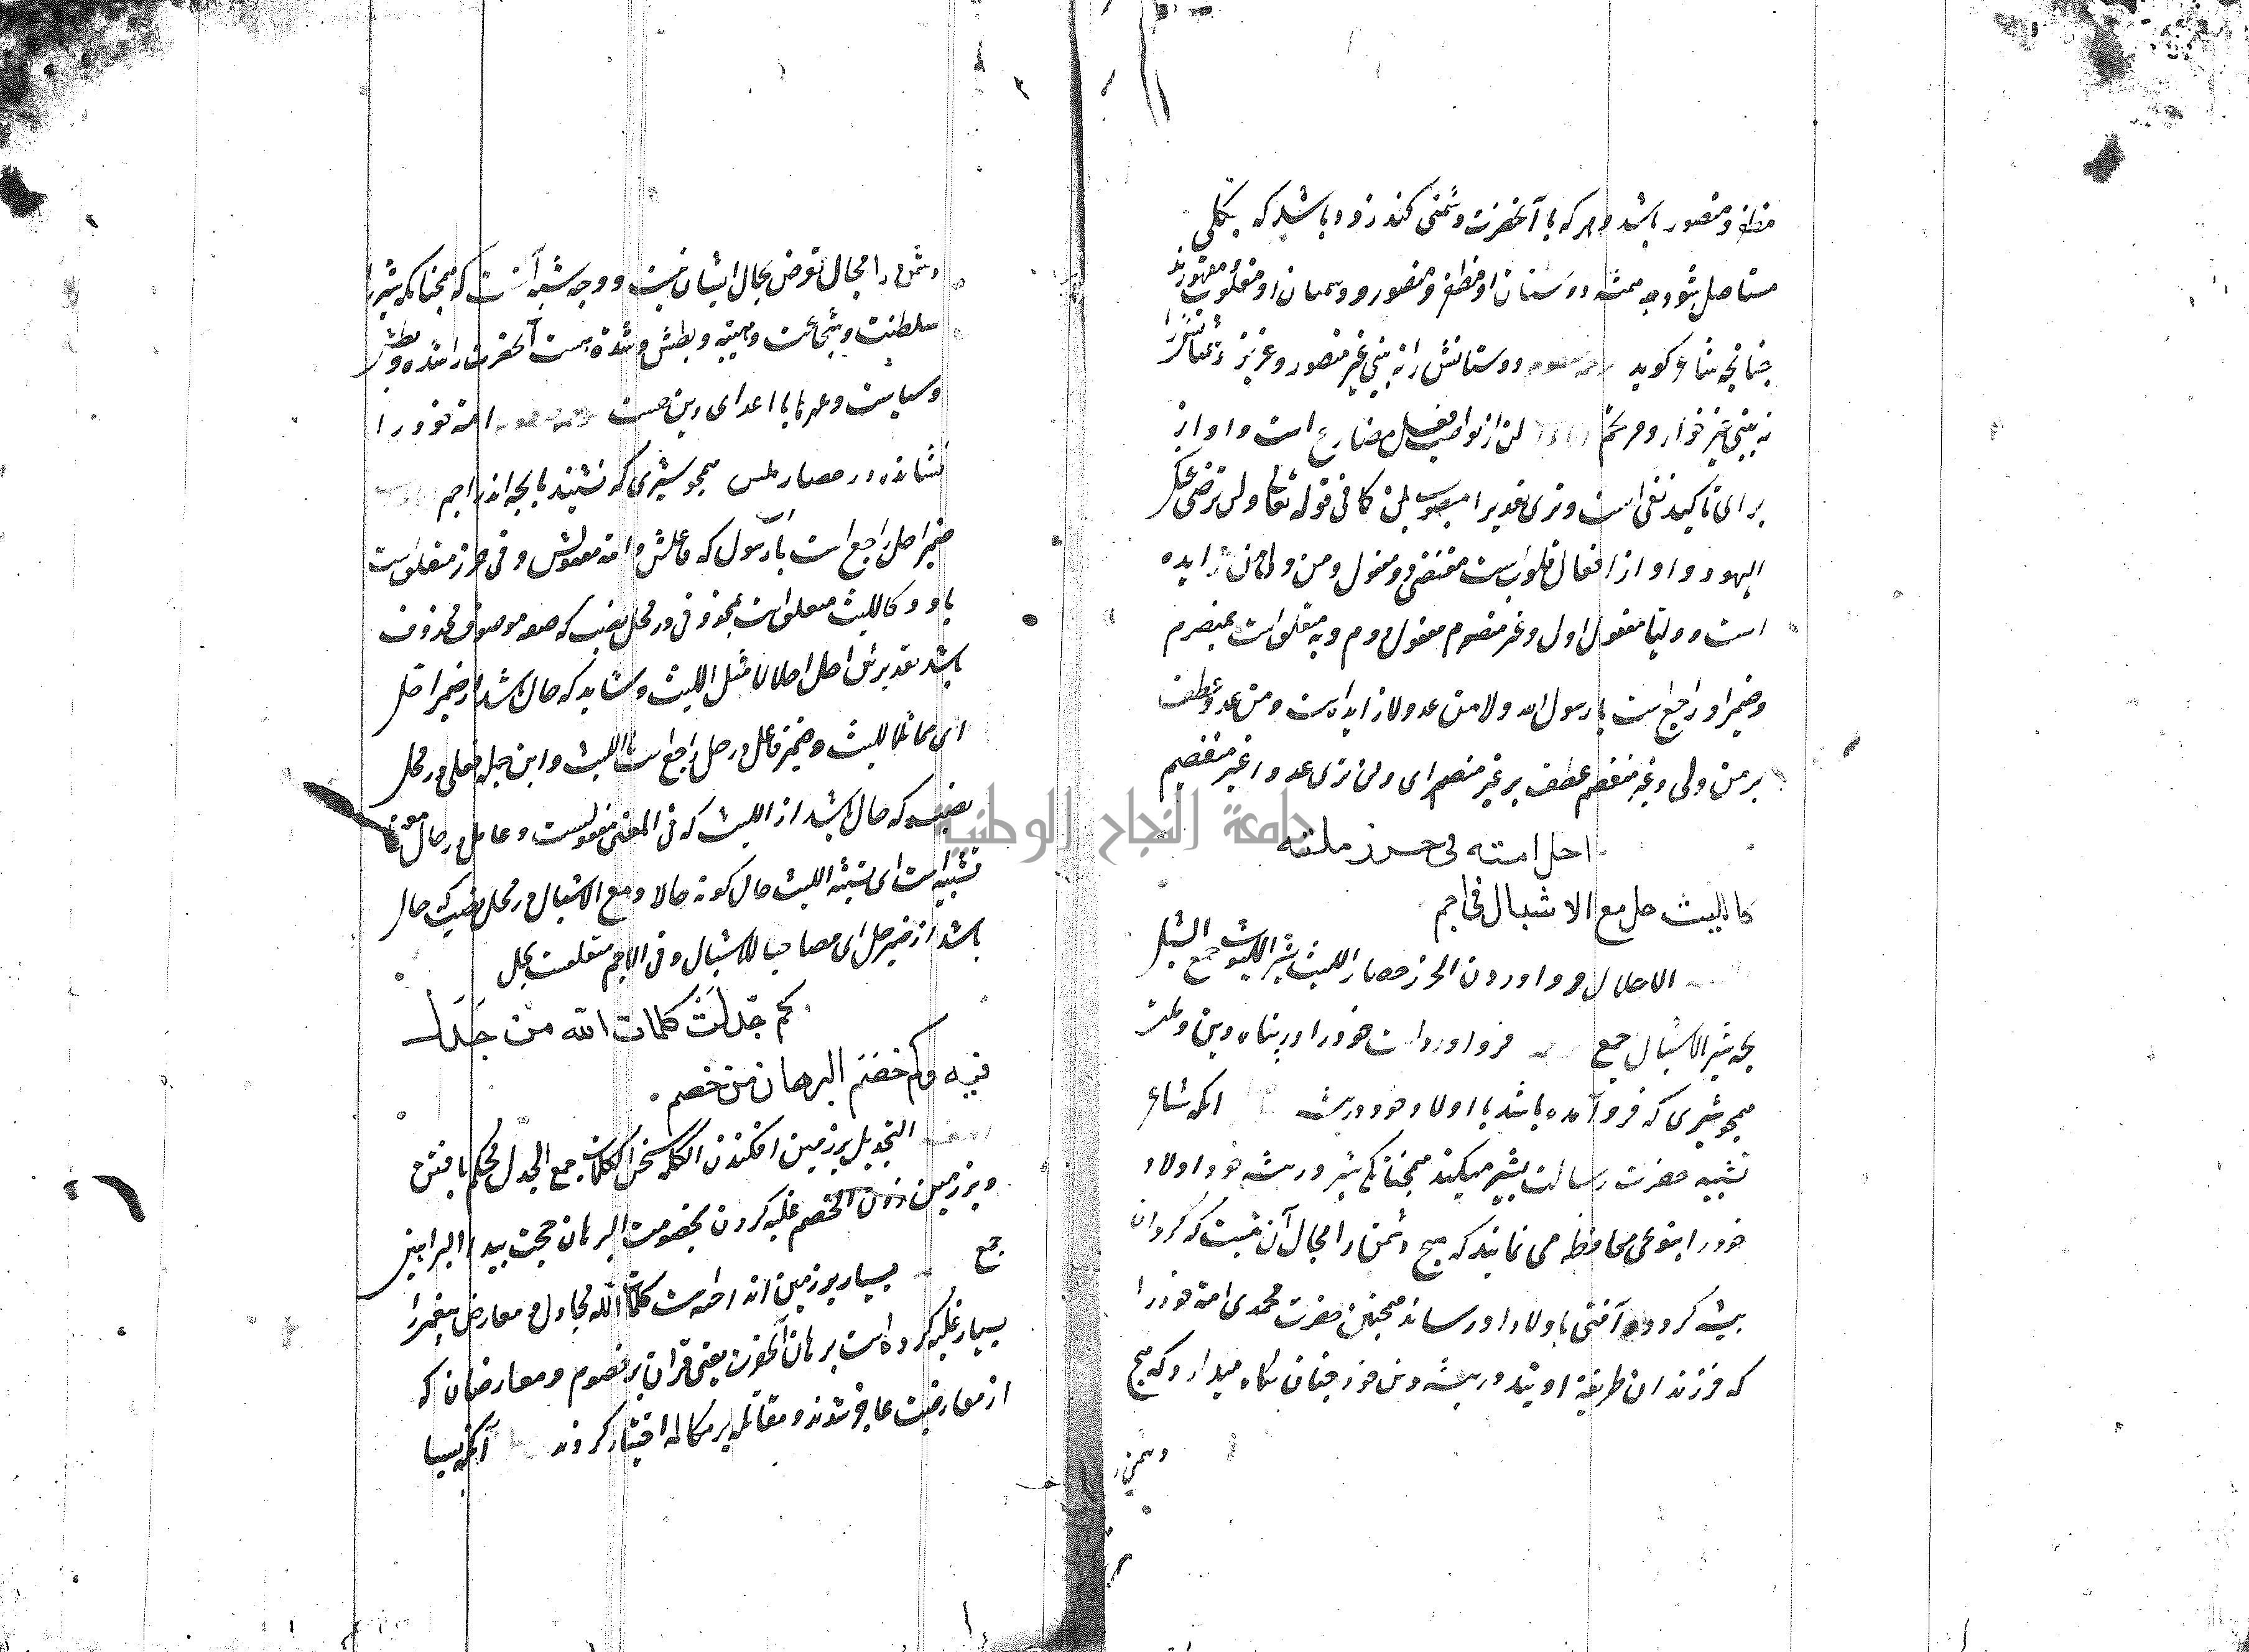 مظفر و منصور باشد و هرکه با آنحضرت دشمنی کند زود باشد که بکلی
مستاصل شود همیشه دوستان او مظفر و منصور و دشمنان او مغلوب و مقهورند
چنانچه شاعر کوید دوستانش را نه بینی غیر منصور و عزیز دشمنانش را
نه بینی غیر خوار و لن از نواصب فعل مضارع است و او از
برای تاکید نفی است و تری تقدیرا منصوب بلن کما فی قوله تعالی ولن ترضی عنک
الیهود و او از افعال قلوب است مقتضی دو مفعول و من ولی من زایده
است و ولیا مفعول اول و غیر منصرم مفعول دوم و به متعلق است بمنصرم
و ضمیر او راجع است با رسول الله ولا من عدو لا زایده است و من عدو عطف
بر من ولی و غیر منقصم عطف بر غیر منصرم ای ولن تری عدوا غیر منقصم
احل امته فی حرز ملته
کاللیث حل مع الاشبال فی اجم
الاحلال فرو اوردن الحرز حصار اللیث شیر اللیوث جمع الشبل
بچه شیر الاشبال جمع فرو اورد است خود را در پناه دین و ملت
همچو شیری که فرو آمده باشد با اولاد خود در بیشه انکه شاعر
تشبیه حضرت رسالت بشیر میکند همچنانکه شیر در بیشه خود اولاد
خود را بنوعی محافظه می نماید که هیچ دشمن را مجال آن نیست که کرد ان
بیشه کردد آفتی باولاد او رساند همچنین حضرت محمدی امة خود را
که فرزندان طریقة اویند در بیشه دین خود چنان نکاه میدارد که هیچ
دشمن را
دشمن را مجال تعرض بحال ایشان نیست و وجه شبه آنست که همچنانکه شیر را
سلطنت و شجاعت و هیبة و بطش و شدة هست آنحضرت را شدة و بطش
و سیاست و با اعدای دین هست امة خود را
نشانده در حصار همچو شیری که نشیند با بچه اندر اجم
ضمیر احل راجع است با رسول که فاعلش و امة مفعولش و فی حرز متعلق است
باو و کاللیث متعلق است بمحذوفی در محل نصب که صفة موصوف محذوف
باشد تقدیرش احل احلالا مثل اللیث و شاید که حال باشد از ضمیر احل
ای مماثلا للیث و ضمیر فاعل در حل راجع است باللیث و این جمله فعلی در محل
نصب که حال باشد از اللیث که فی المعنی مفعولست و عامل در حال معنی
تشبیه است ای تشبه اللیث حال کونه حالا و مع الاشبال در محل نصب که حال
باشد از ضمیر حل ای مصاحبا للاشبال و فی الاجم متعلقست بحل
کم جدلت کلمات الله من جدل
فیه وکم خصم البرهان من خصم
التجدیل بر زمین افکندن الکلمة سخن الکلمات جمع الجدل
و بر زمین زدن الخصم غلبه کردن بخصومت البرهان حجت پیدا البراهین
جمع بسیار بر زمین انداخته است کلمات الله مجادل و معارض پیغمبر را
بسیار غلبه کرده است برهان آنحضرت یعنی قران بر خصوم و معارضان که
از معارضت عاجز شدند و مقاتله بر مکالمه اختیار کردند
جامعة النجاح الوطنية